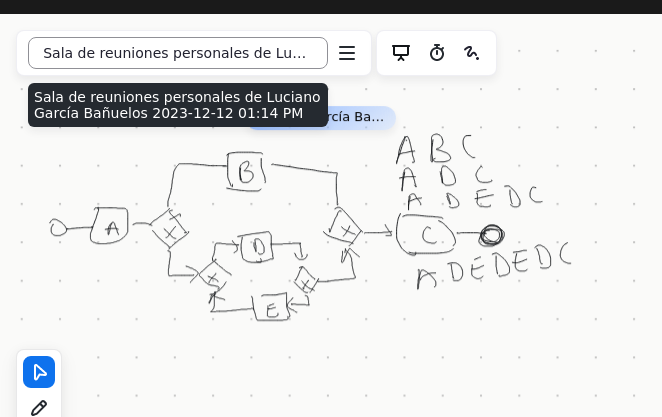 Sala de reuniones personales de Lu...
Sala de reuniones personales de Luciano
García Bañuelos 2023-12-12 01:14 PM
rcía Ba...
A B C
A D C
A D E D C
B
A
X
X
C
D
X
X
E
A D E D E D C